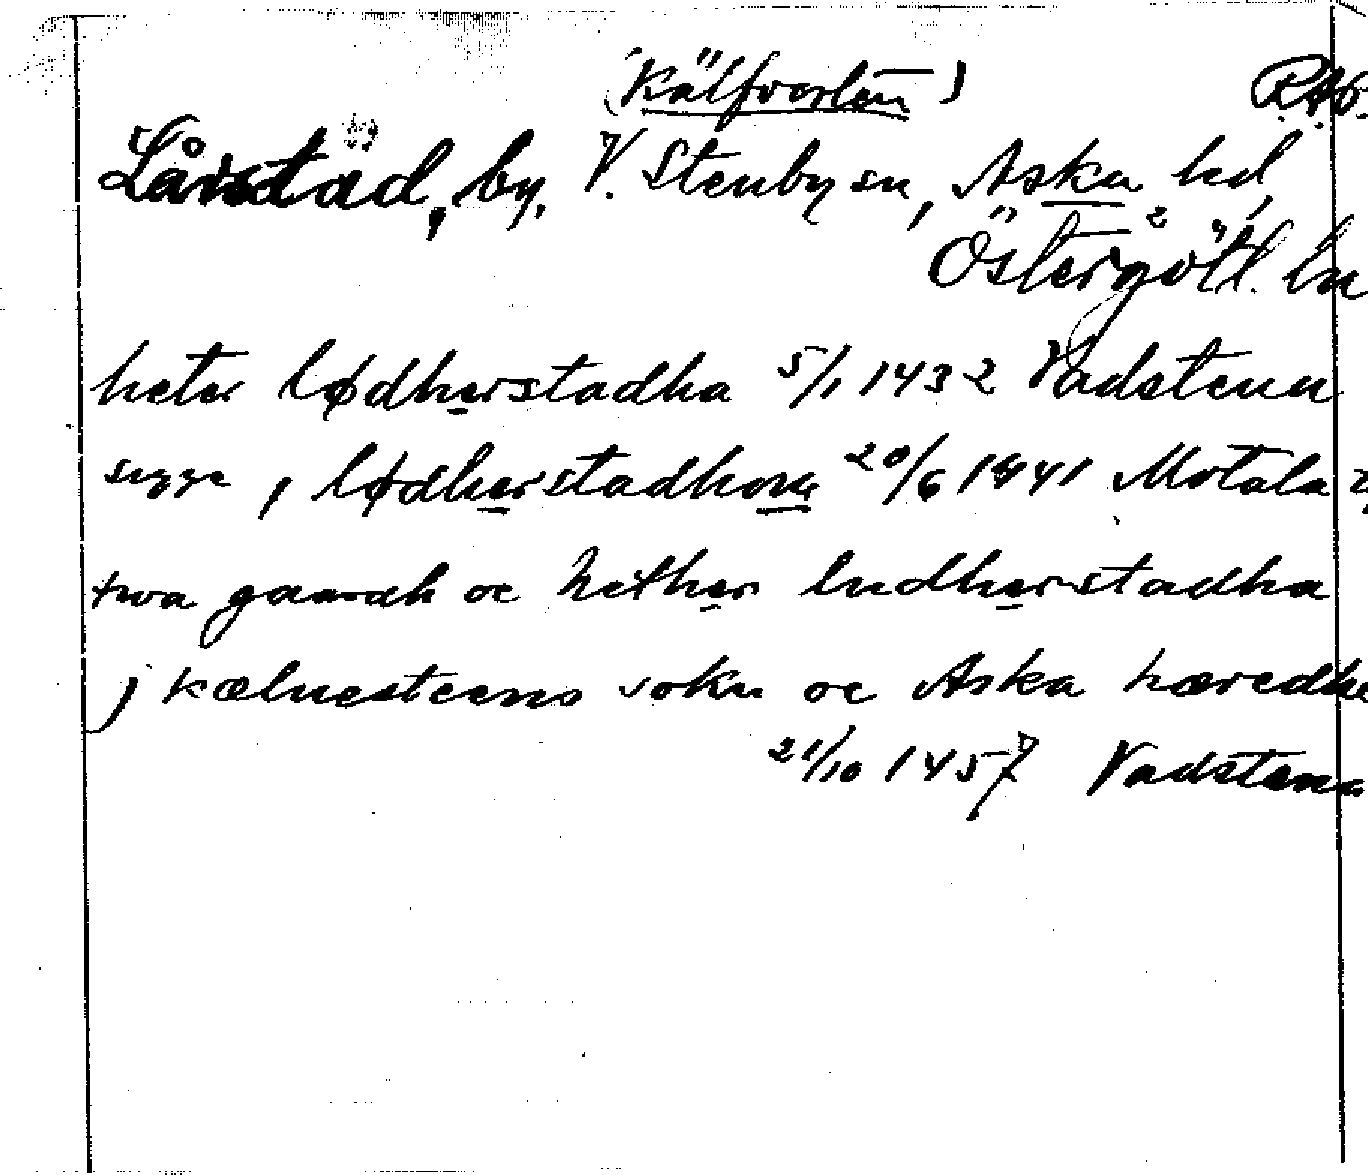 (Kälfvesten) RAp.
Lårstad, by, V. Stenby sn, Aska hd,
Östergötl. ln
heter lødherstadha 5/1 1432 Vadstena
segge, lødherstadhom 20/6 1441 Motala
twa gaardh oc hether ludherstadha
j kæluesteens sokn oc Aska hæredhe
21/10 1457 Vadstena